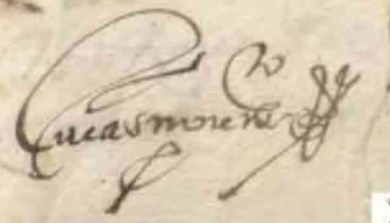 Lucas moreno